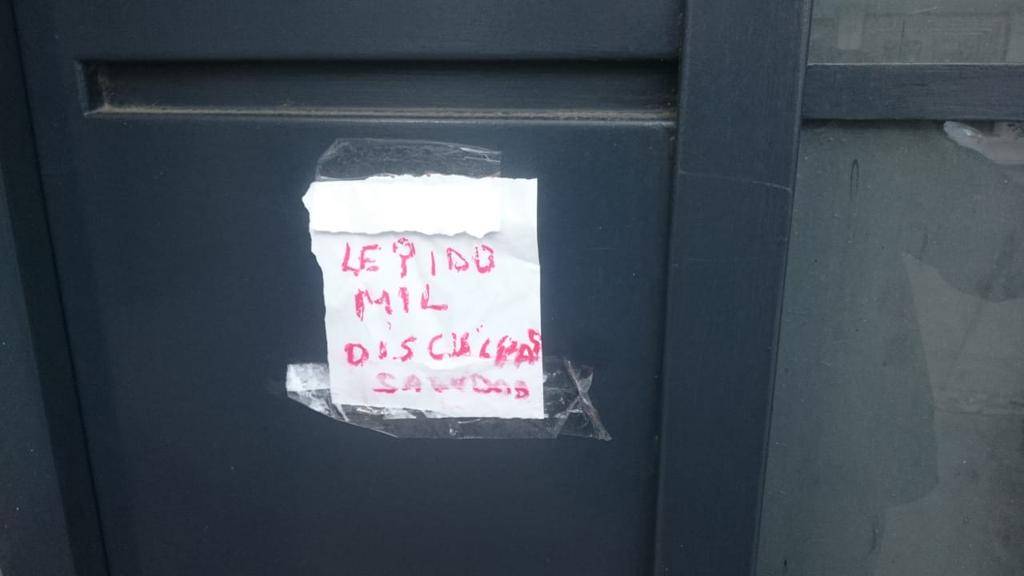 LE PIDO
MIL
DISCULPAS
SALUDOS